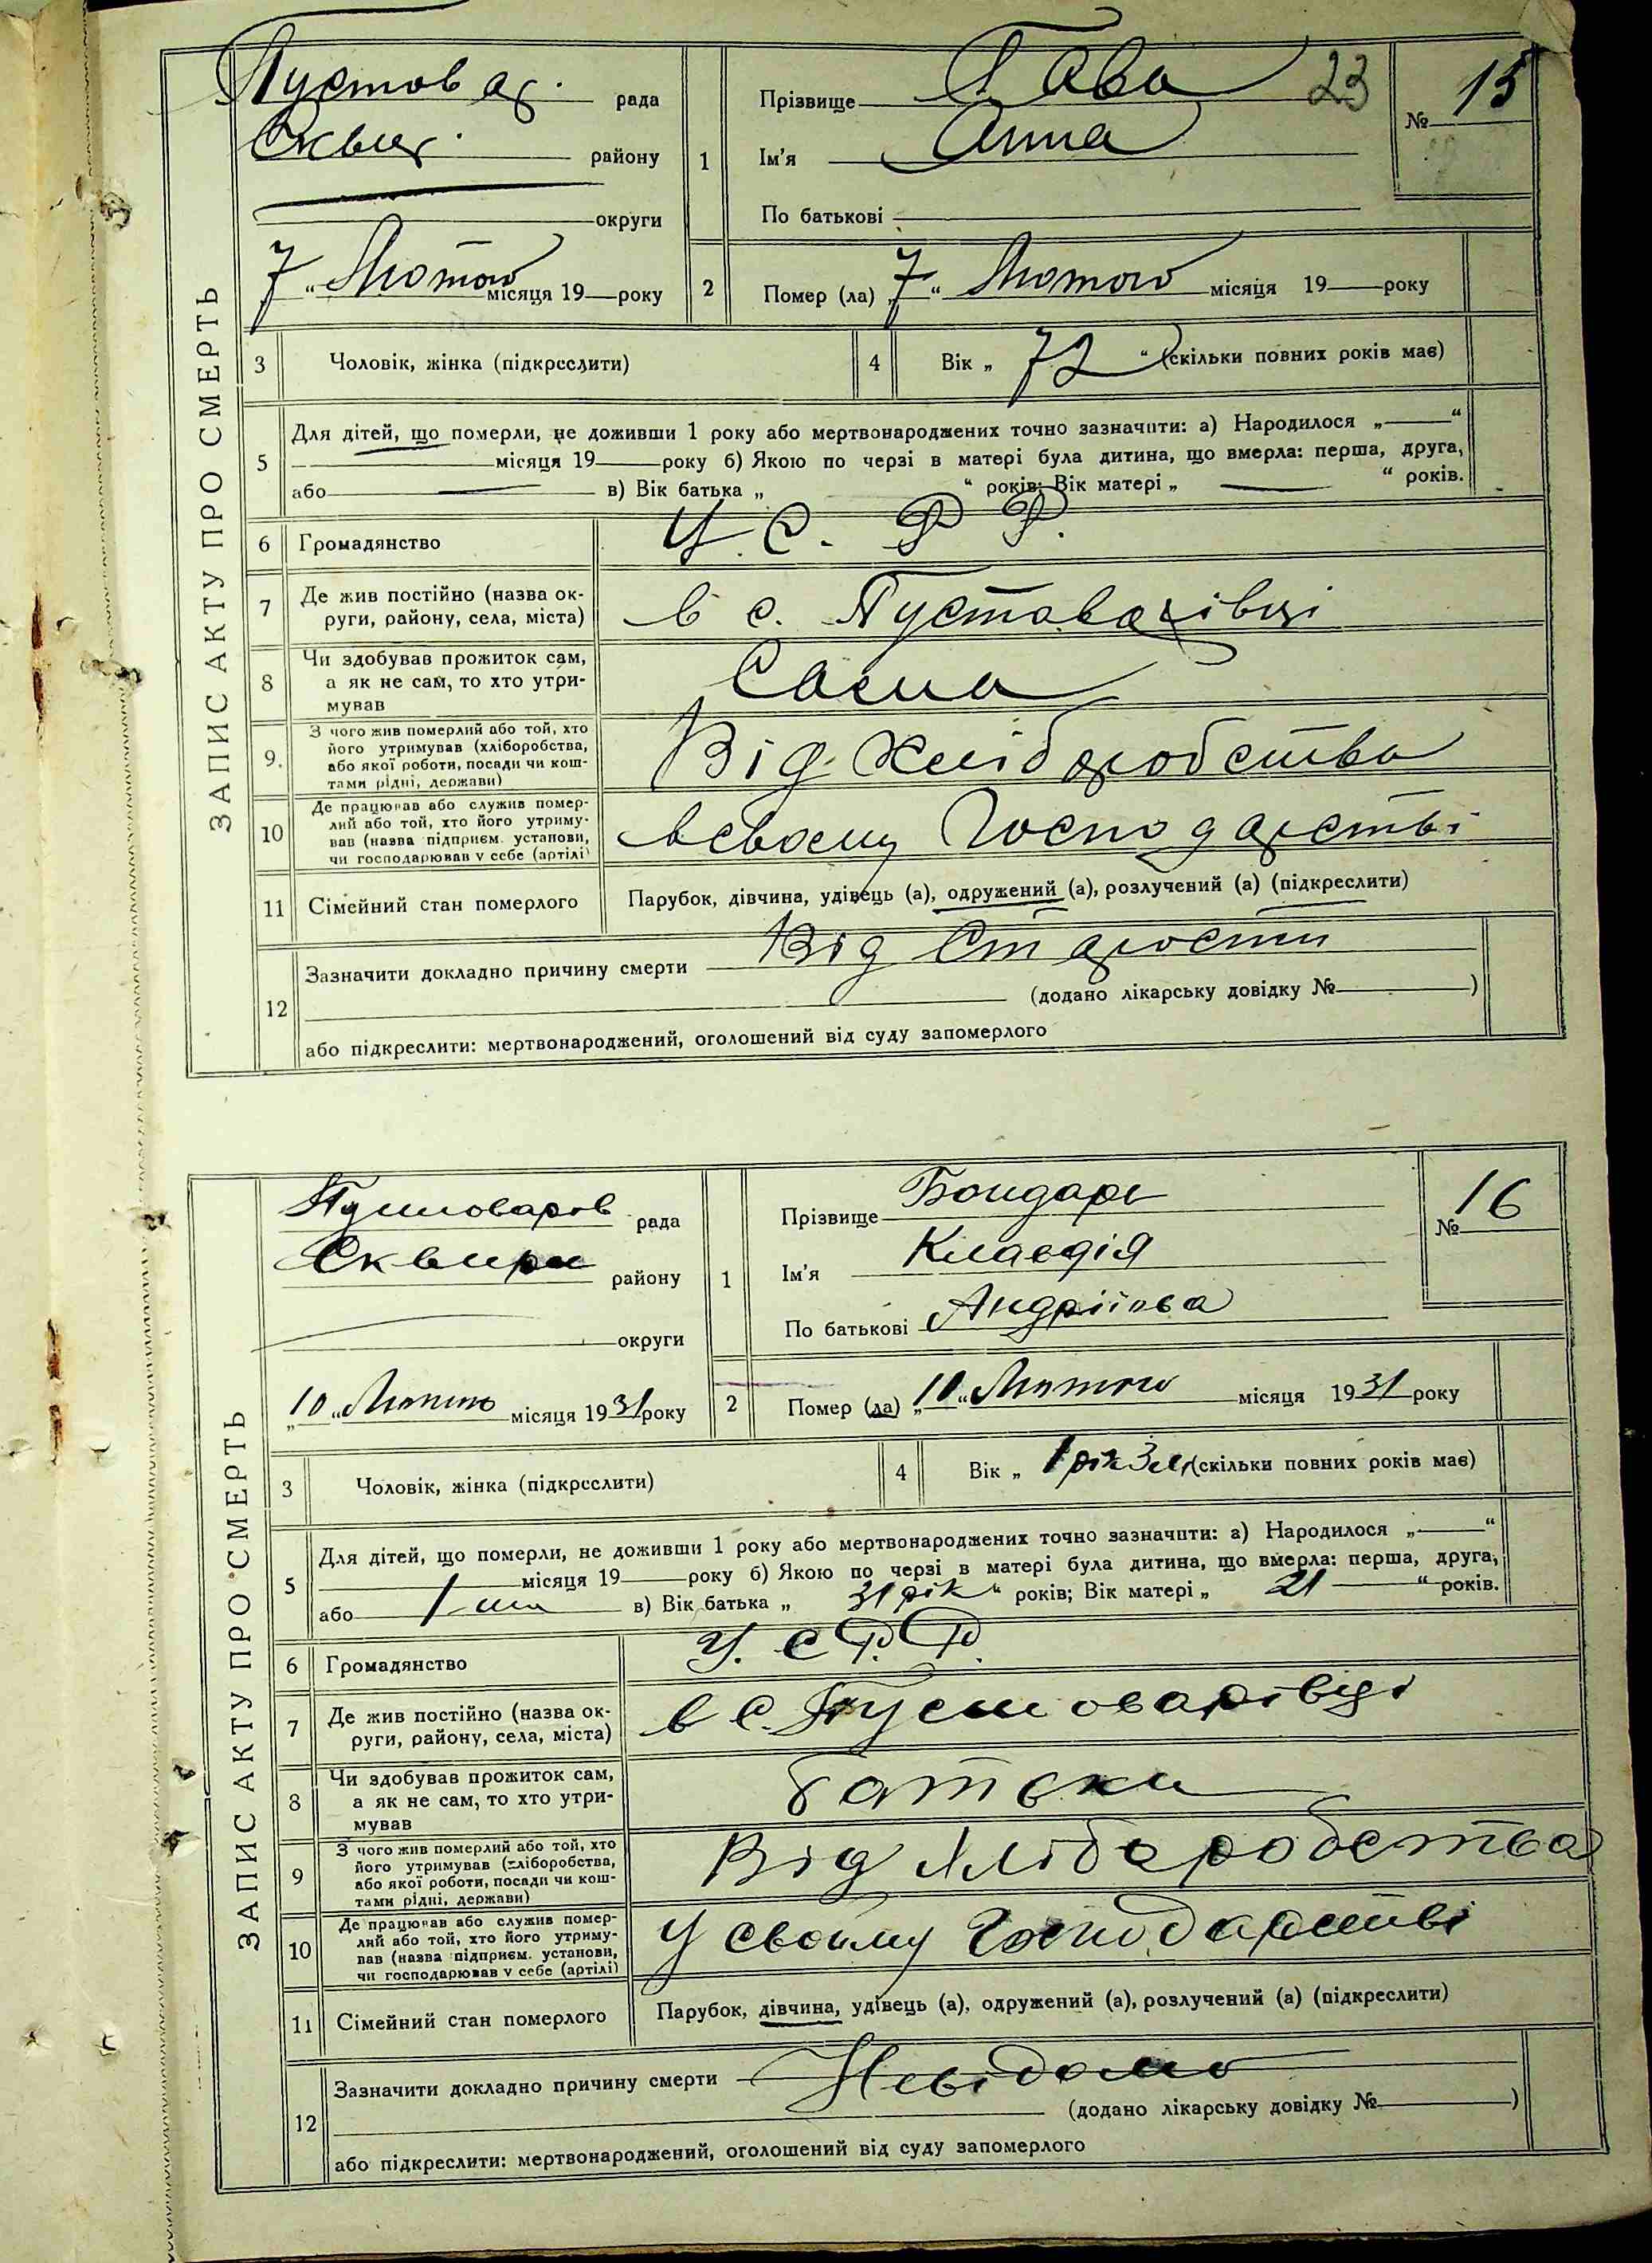 ЗАПИС АКТУ ПРО СМЕРТЬ
Пустовар. рада
Сквир. району
округи
7 „ Лютого місяця 19 — року
1
Прізвище Гава 23
Ім'я Анна
По батькові
№ 15
2
Помер (ла) „7“ Лютого місяця 19 — року
3 Чоловік, жінка (підкреслити)
4 Вік „ 72 “ (скільки повних років має)
5 Для дітей, що померли, не доживши 1 року або мертвонароджених точно зазначити: а) Народилося „ — “
місяця 19 — року б) Якою по черзі в матері була дитина, що вмерла: перша, друга,
або — в) Вік батька „ “ років; Вік матері „ — “ років.
6 Громадянство У. С. Р Р.
7 Де жив постійно (назва ок-
руги, району, села, міста) в с. Пустоварівці
8 Чи здобував прожиток сам,
а як не сам, то хто утри-
мував Сама
9. З чого жив померлий або той, хто
його утримував (хліборобства,
або якої роботи, посади чи кош-
тами рідні, держави) Від Хліборобства
10 Де працював або служив помер-
лий або той, хто його утриму-
вав (назва підприєм. установи,
чи господарював у себе (артілі) в своєму Господарстві
11 Сімейний стан померлого Парубок, дівчина, удівець (а), одружений (а), розлучений (а) (підкреслити)
12 Зазначити докладно причину смерти Від Старости
(додано лікарську довідку № — )
або підкреслити: мертвонароджений, оголошений від суду запомерлого
ЗАПИС АКТУ ПРО СМЕРТЬ
Пустоваров рада
Сквири району
округи
„10“ Лютого місяця 1931 року
1
Прізвище Бондар
Ім'я Клавдія
По батькові Андріїва
№ 16
2
Помер (ла) „10“ Лютого місяця 1931 року
3 Чоловік, жінка (підкреслити)
4 Вік „ 1 рік 3 м. (скільки повних років має)
5 Для дітей, що померли, не доживши 1 року або мертвонароджених точно зазначити: а) Народилося „ — “
місяця 19 — року б) Якою по черзі в матері була дитина, що вмерла: перша, друга,
або 1-ша в) Вік батька „ 31 рік “ років; Вік матері „ 21 — “ років.
6 Громадянство У. С Р. Р.
7 Де жив постійно (назва ок-
руги, району, села, міста) в с. Пустоварівці
8 Чи здобував прожиток сам,
а як не сам, то хто утри-
мував батьки
9 З чого жив померлий або той, хто
його утримував (хліборобства,
або якої роботи, посади чи кош-
тами рідні, держави) Від Хліборобства
10 Де працював або служив помер-
лий або той, хто його утриму-
вав (назва підприєм. установи,
чи господарював у себе (артілі) У своїму Господарстві
11 Сімейний стан померлого Парубок, дівчина, удівець (а), одружений (а), розлучений (а) (підкреслити)
12 Зазначити докладно причину смерти Невідомо
(додано лікарську довідку № — )
або підкреслити: мертвонароджений, оголошений від суду запомерлого